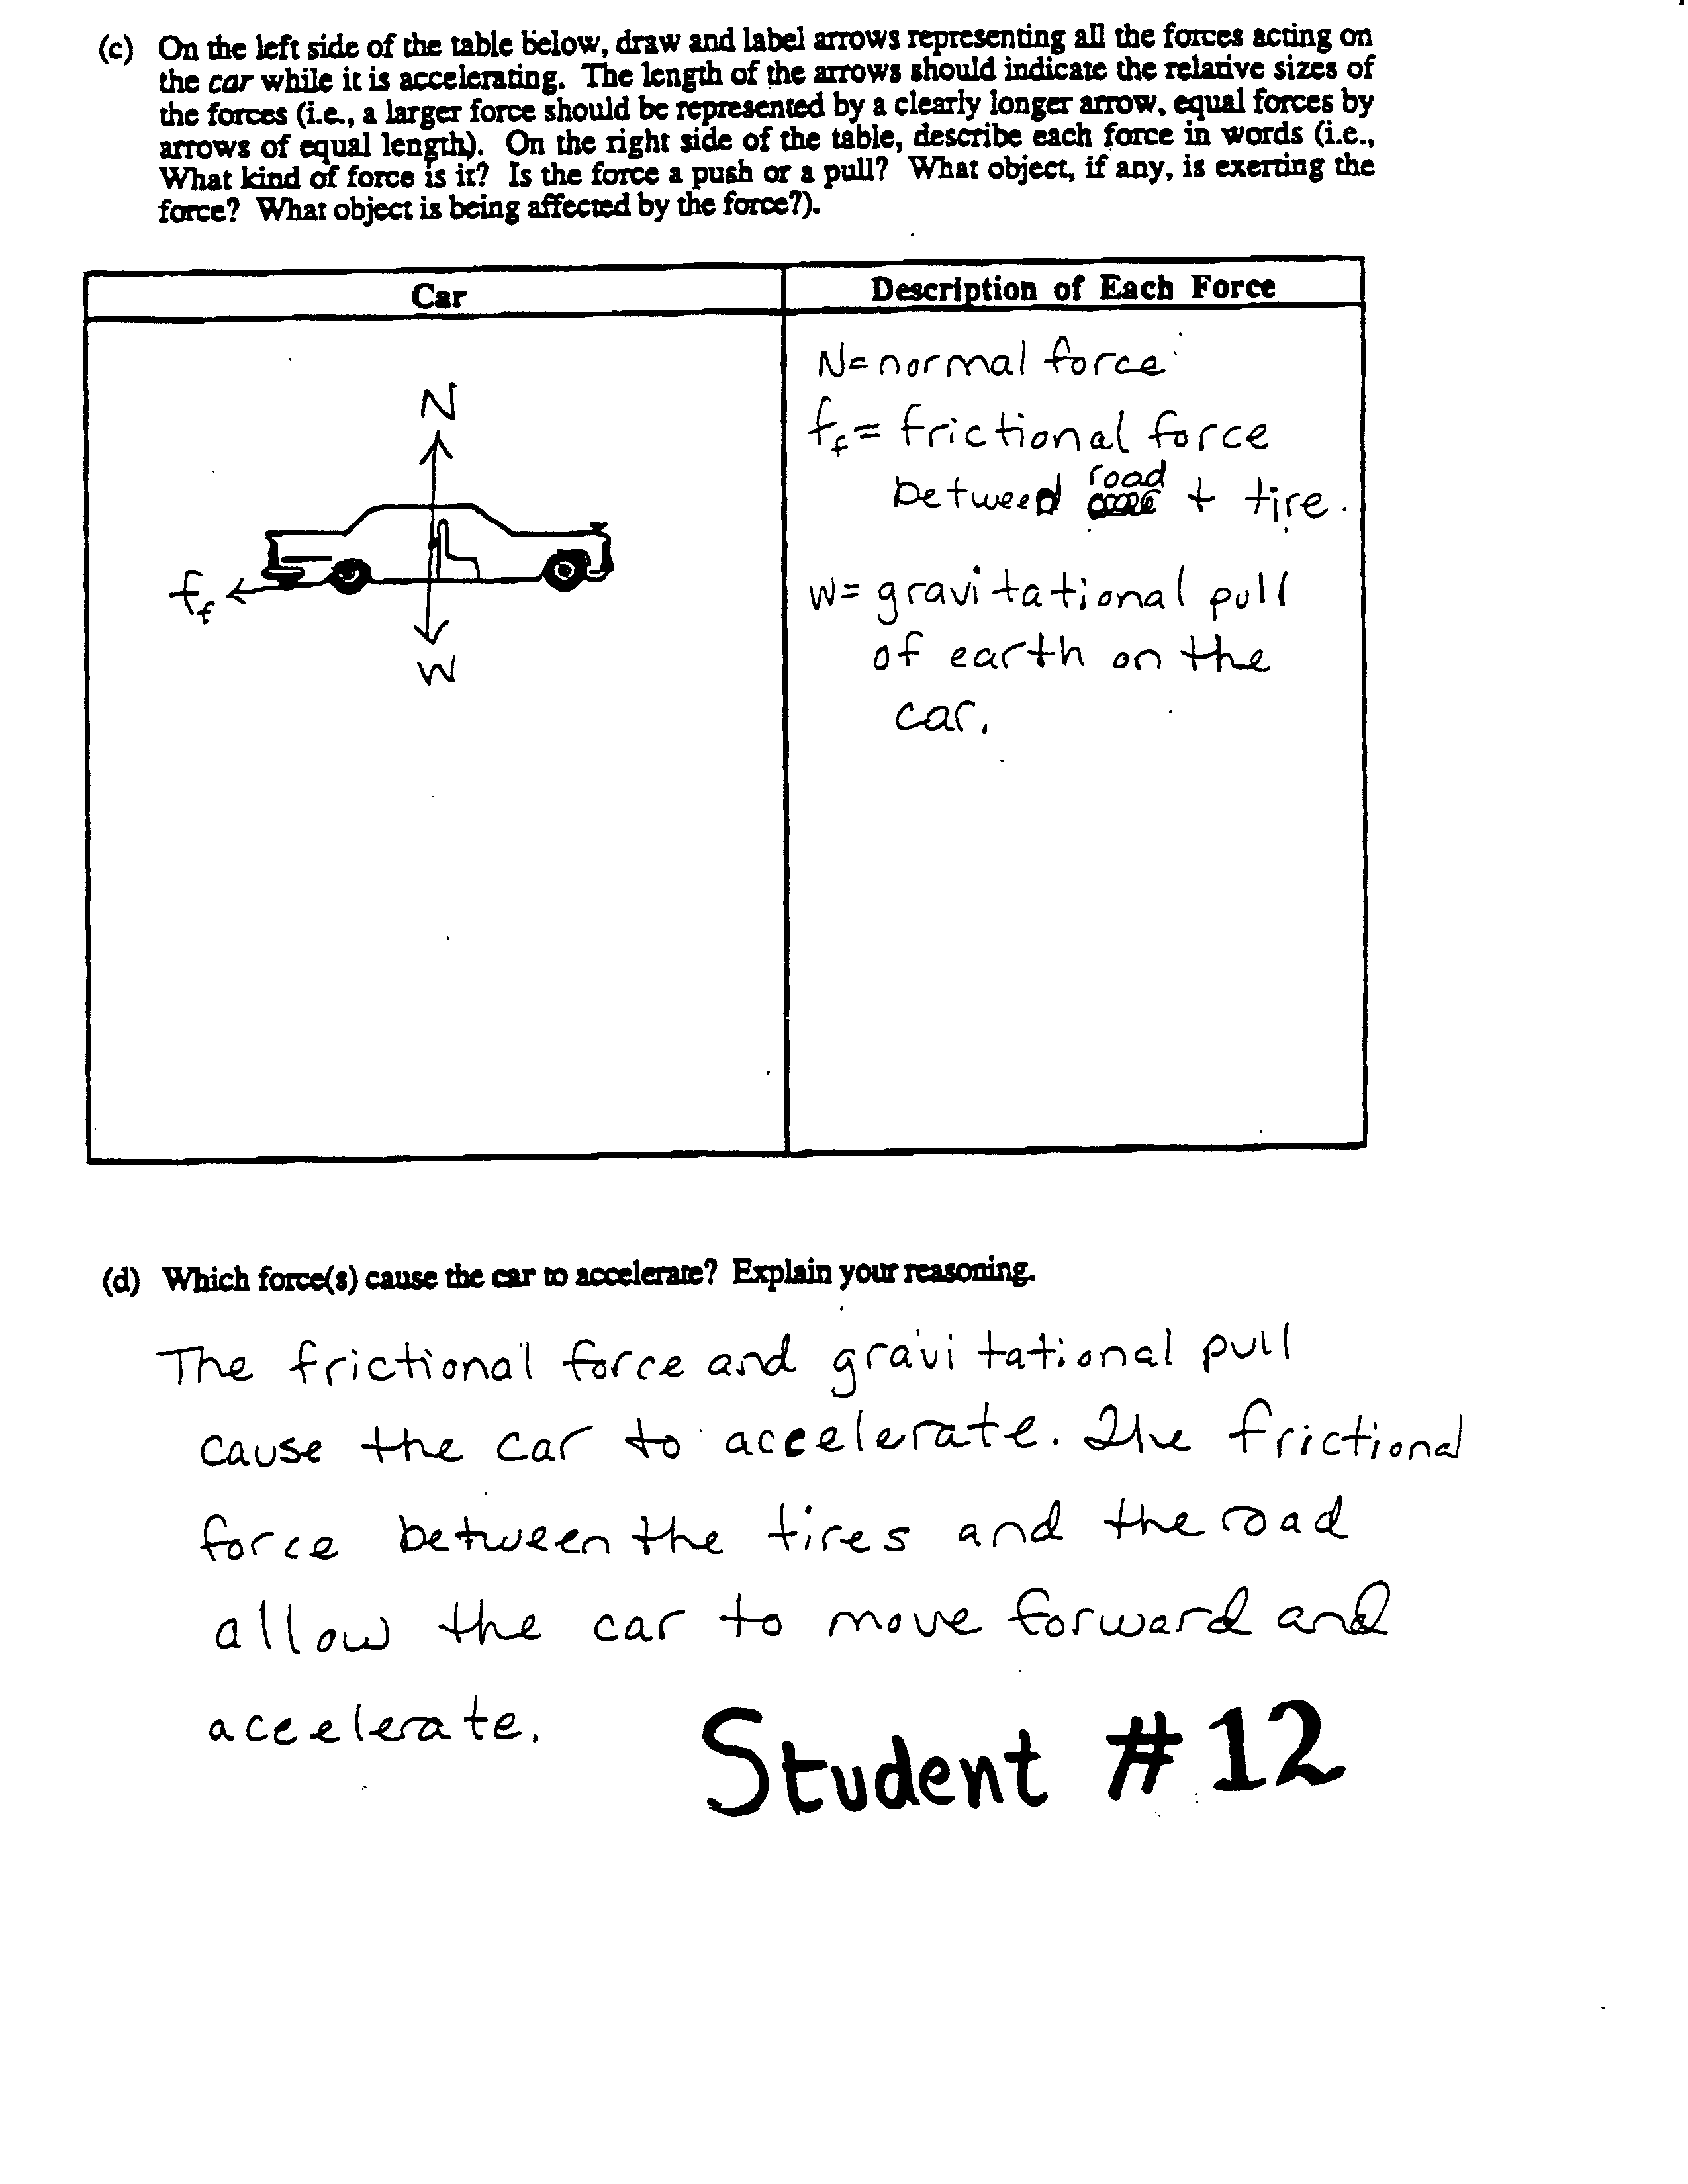 (c) On the left side of the table below, draw and label arrows representing all the forces acting on
the car while it is accelerating. The length of the arrows should indicate the relative sizes of
the forces (i.e., a larger force should be represented by a clearly longer arrow, equal forces by
arrows of equal length). On the right side of the table, describe each force in words (i.e.,
What kind of force is it? Is the force a push or a pull? What object, if any, is exerting the
force? What object is being affected by the force?).
Car
N
f_f
W
Description of Each Force
N= normal force
f_f= frictional force
between road + tire.
W= gravitational pull
of earth on the
car.
(d) Which force(s) cause the car to accelerate? Explain your reasoning.
The frictional force and gravitational pull
cause the car to accelerate. The frictional
force between the tires and the road
allow the car to move forward and
accelerate.
Student #12